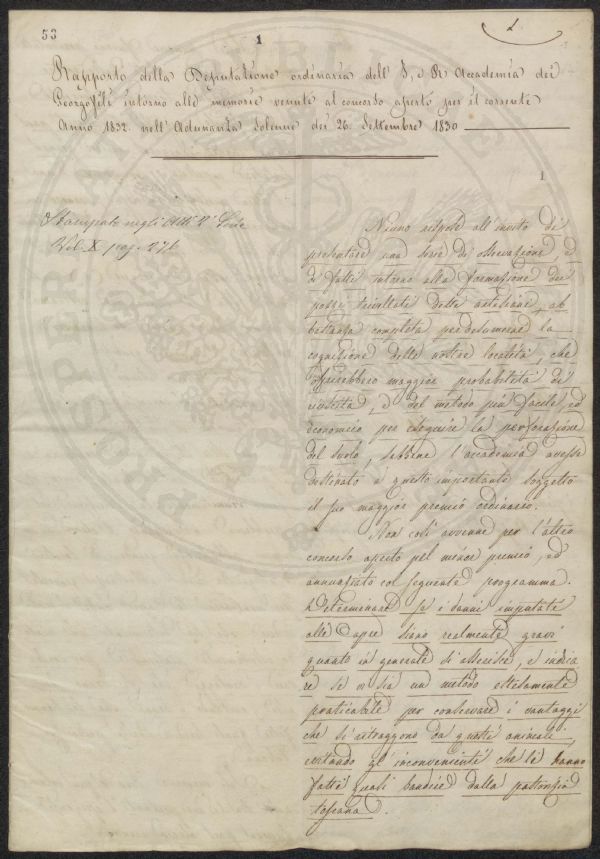 53
1
1.
Rapporto della Deputazione ordinaria dell' I. e R. Accademia dei
Georgofili intorno alle memorie venute al concorso aperto per il corrente
Anno 1832. nell' Adunanza Solenne dei 26. Settembre 1830
1
Stampato negli Atti
Vol. X pag. 276
Niuno rispose all' invito di
presentare una serie di osservazioni, e
di fatti intorno alla formazione dei
pozzi trivellati detti artesiani, ab
bastanza completa per desumerne la
cognizione delle nostre località, che
offrirebbero maggior probabilità di
riuscita, e del metodo più facile, ed
economico per eseguire la perforazione
del suolo, sebbene l'accademia avesse
destinato a questo importante soggetto
il suo maggior premio ordinario.
Non così avvenne per l'altro
concorso aperto pel minor premio, ed
annunziato col seguente programma.
Determinare se i danni imputati
alle Capre siano realmente gravi
quanto in generale si asserisce, e indica
re se vi sia un metodo estesamente
praticabile per conservare i vantaggi
che si ritraggono da questi animali,
evitando gl' inconvenienti che le hanno
fatte quasi bandire dalla pastorizia
toscana.
PRO